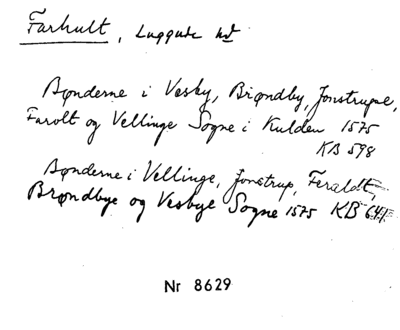 Farhult, Luggude hd
Bønderne i Vesby, Brøndby, Jonstrupne,
Farolt og Vellinge Sogne i Kulden 1575
KB 598
Bønderne i Vellinge, Jonstrup, Feraldt,
Brøndbye og Vesbye Sogne 1575 KB 641
Nr 8629